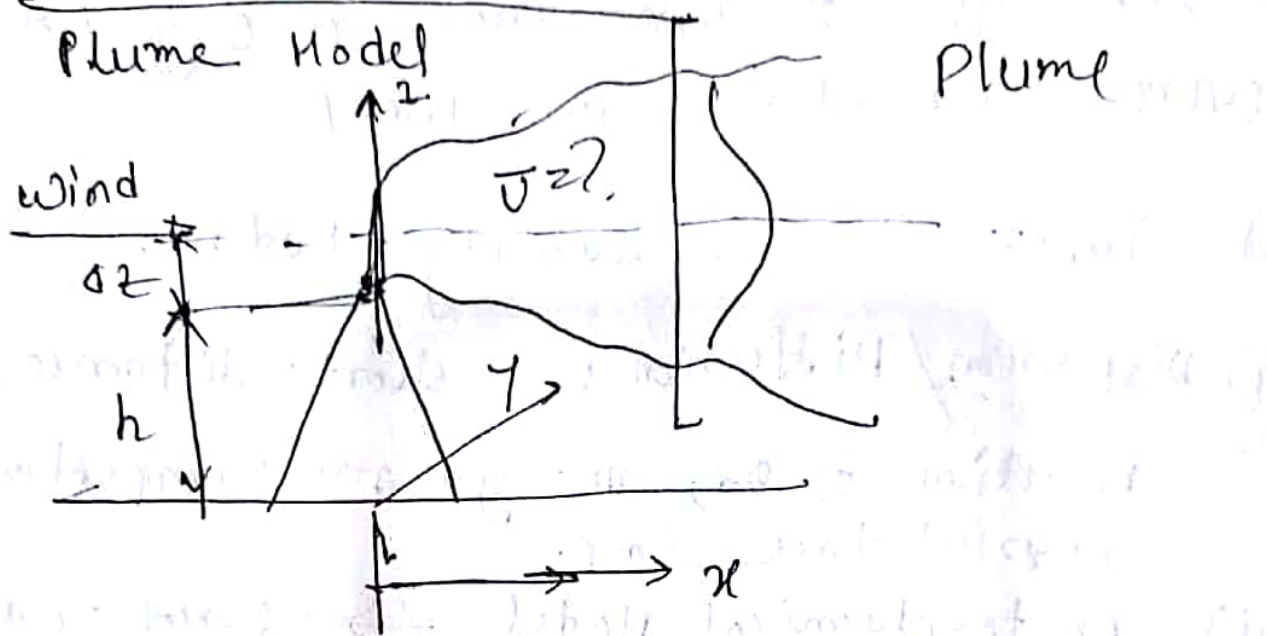 Plume Model
Plume
z
wind
Ū=?
Δz
h
y
x